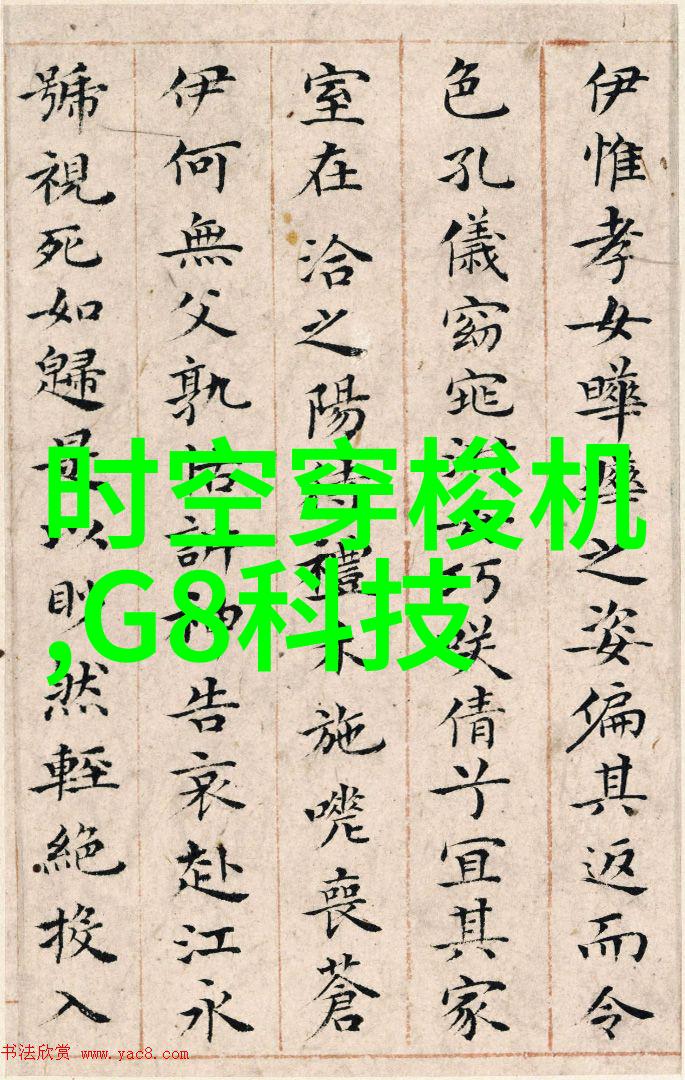 伊惟孝女曄曄之姿偏其返而令
色孔儀窈窕淑女巧咲倩兮宜其家
室在洽之陽待禮未施嗟喪蒼
伊何無父孰怙訴神告哀赴江永
號視死如歸是以眇然輕絕投入
时空穿梭机
,G8科技
书法欣赏 www.yac8.com